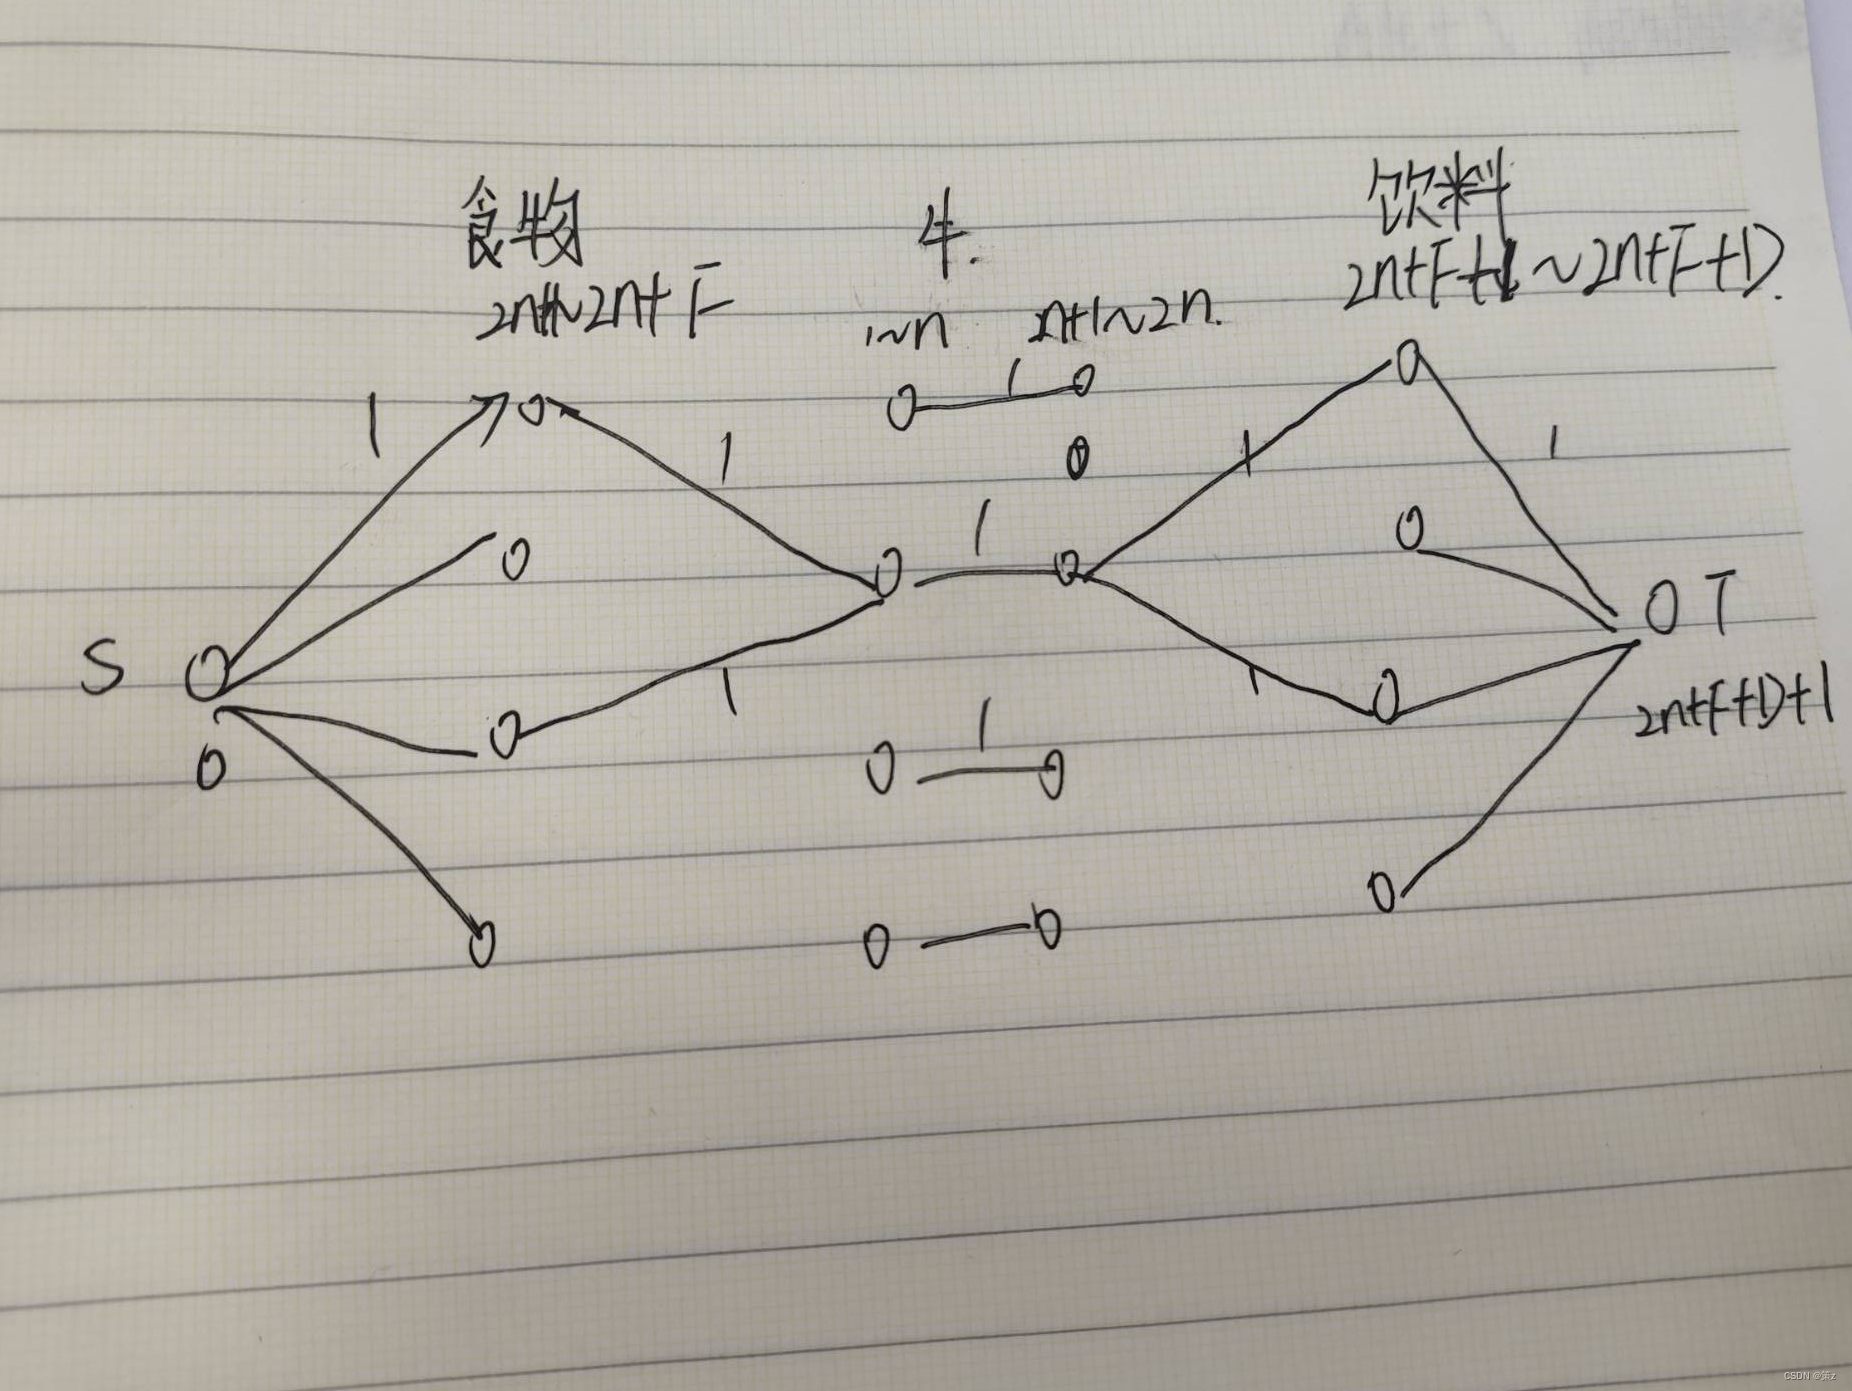 食物 牛. 饮料
2n+1~2n+F 1~n n+1~2n. 2n+F+1~2n+F+D.
1 1 1 1 1 1
S 0 T
1 1 1
2n+F+D+1
0
CSDN @策z